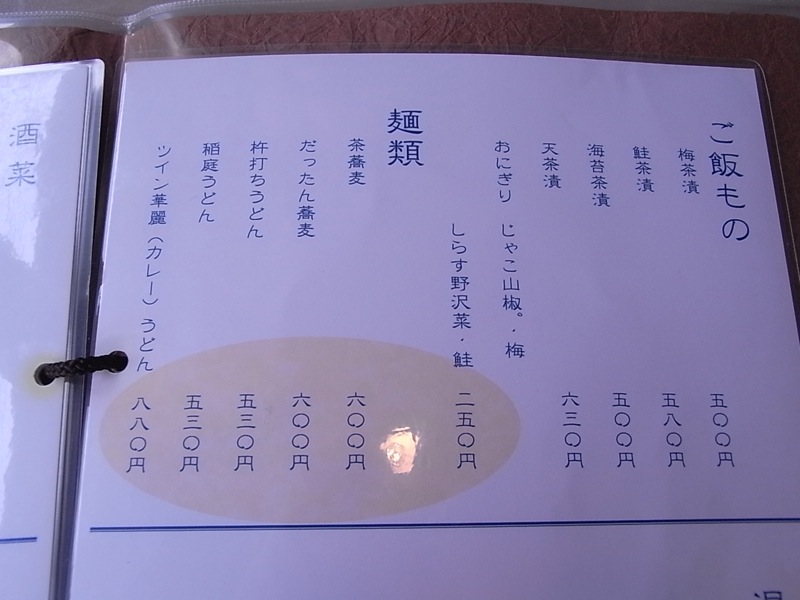 ご飯もの
梅茶漬 五〇〇円
鮭茶漬 五八〇円
海苔茶漬 五〇〇円
天茶漬 六三〇円
おにぎり じゃこ山椒。・梅
しらす野沢菜・鮭 二五〇円
麺類
茶蕎麦 六〇〇円
だったん蕎麦 六〇〇円
杵打ちうどん 五三〇円
稲庭うどん 五三〇円
ツイン華麗（カレー）うどん 八八〇円
酒菜